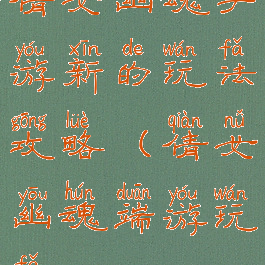 倩女幽魂手
yóu xīn de wán fǎ
游新的玩法
gōng lüè qiàn nǚ
攻略(倩女
yōu hún duān yóu wán
幽魂端游玩
fǎ